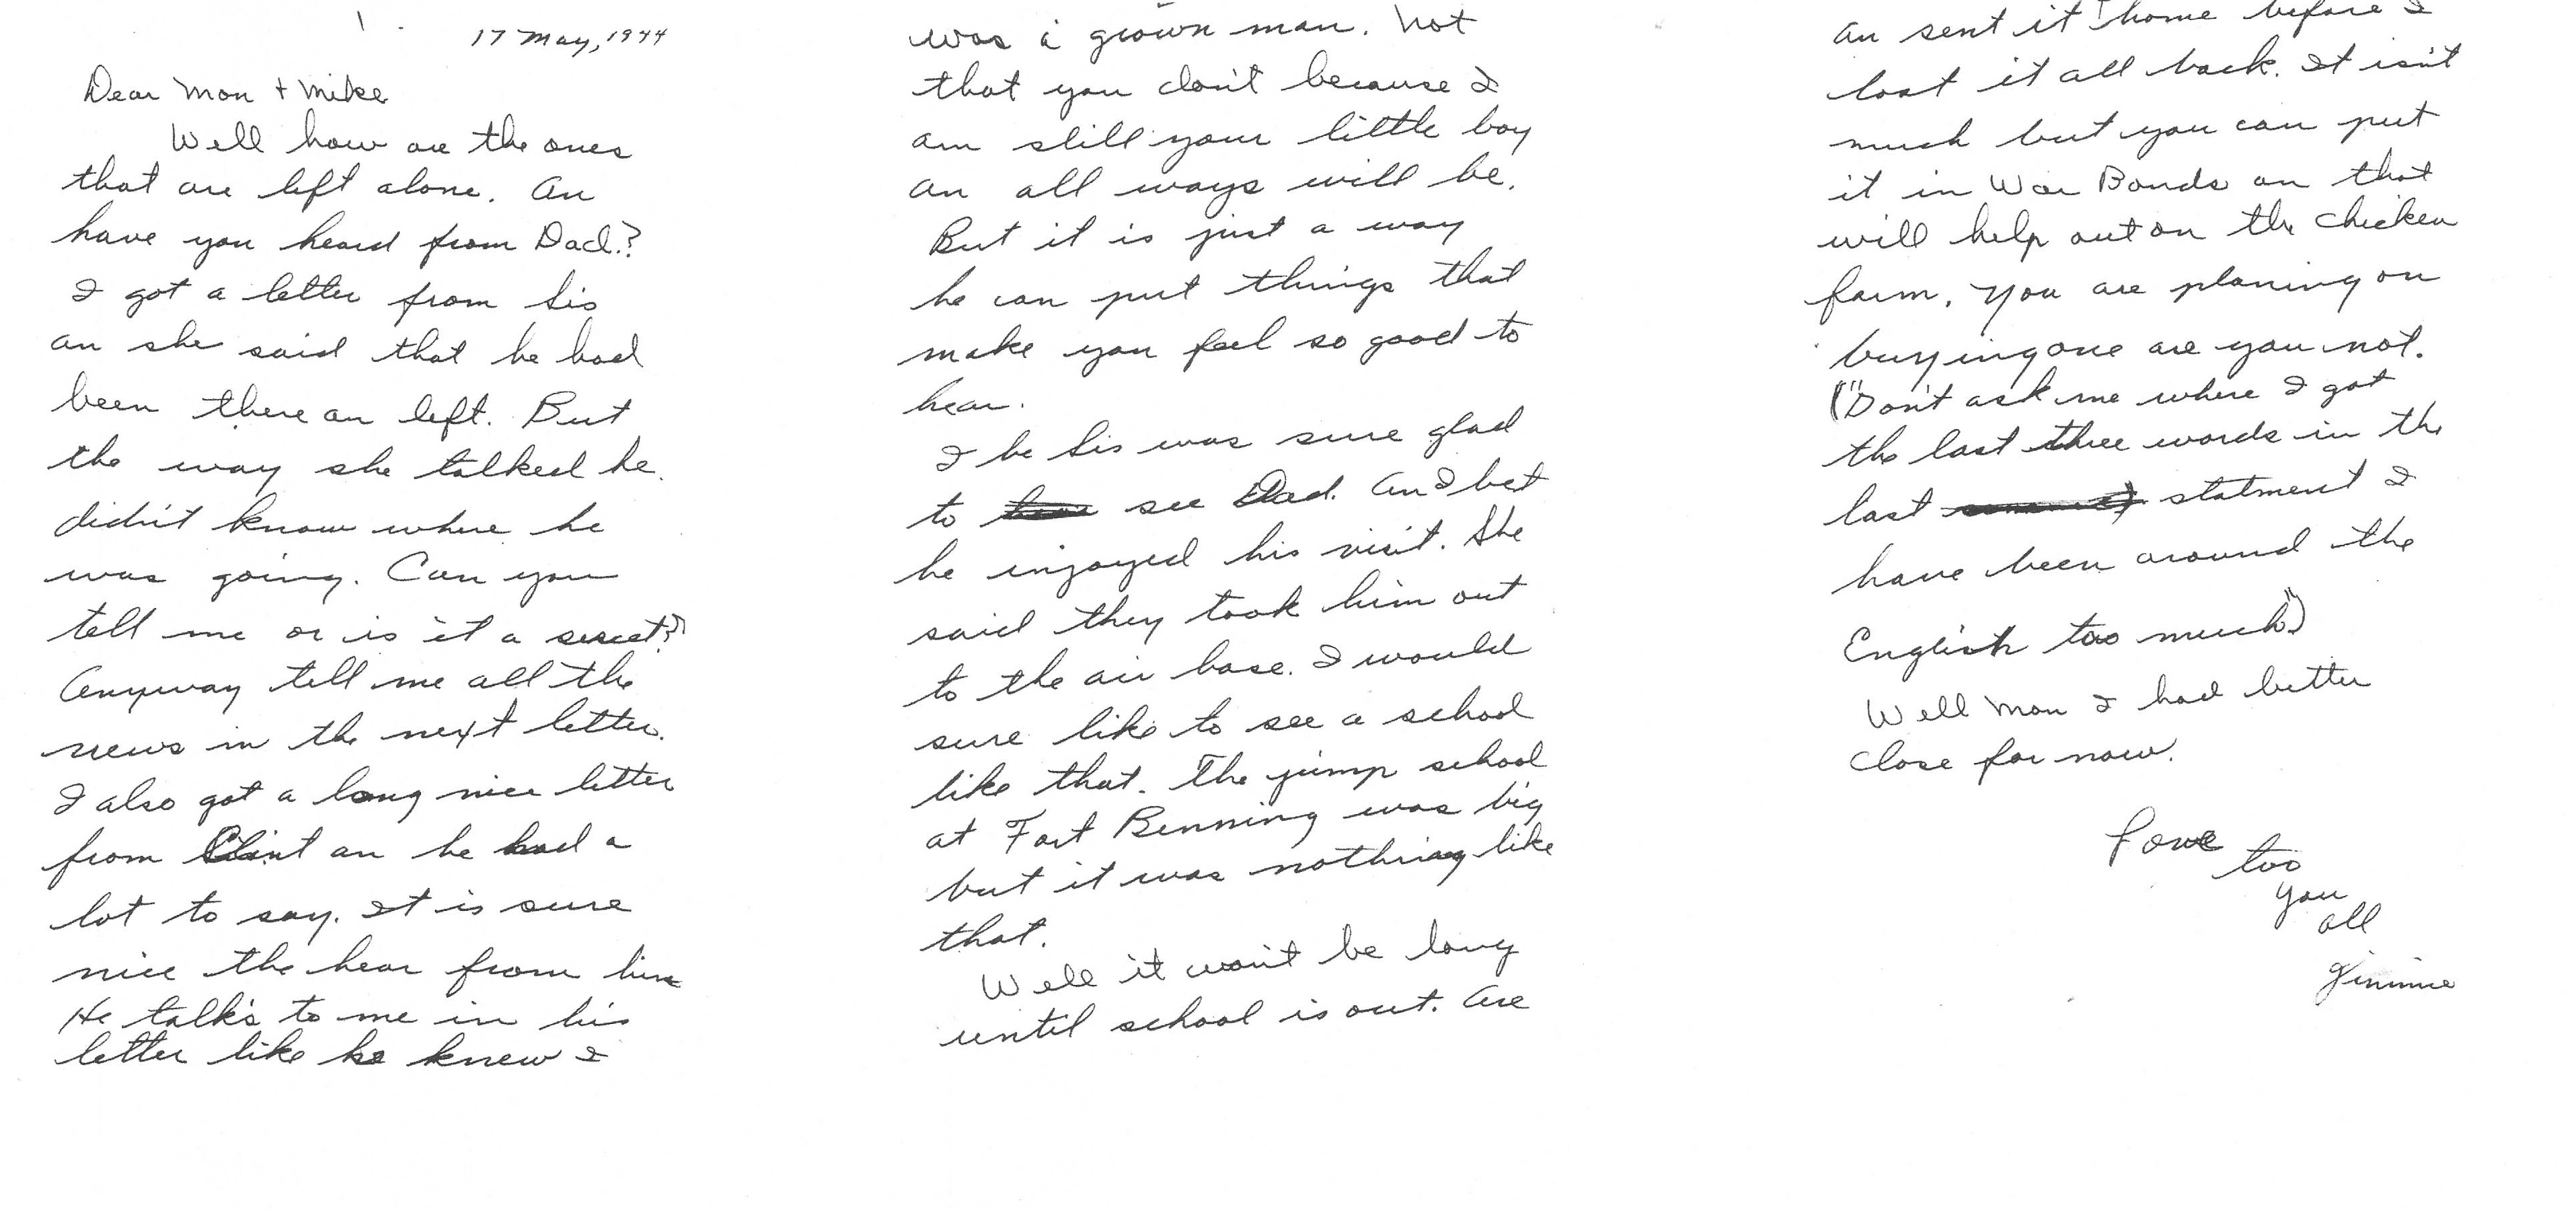 17 May, 1944
Dear Mon + Mike
Well how are the ones
that are left alone. An
have you heard from Dad.?
I got a letter from Sis
an she said that he had
been there an left. But
the way she talked he
didn't know where he
was going. Can you
tell me or is it a secret?
Anyway tell me all the
news in the next letter.
I also got a long nice letter
from Clint an he had a
lot to say. It is sure
nice the hear from him
He talk's to me in his
letter like he knew I
was a grown man. Not
that you don't because I
am still your little boy
an all ways will be.
But it is just a way
he can put things that
make you feel so good to
hear.
I be Sis was sure glad
to see Dad. An I bet
he injoyed his visit. She
said they took him out
to the air base. I would
sure like to see a school
like that. The jump school
at Fort Benning was big
but it was nothing like
that.
Well it won't be long
until school is out. Are
an sent it home before I
lost it all back. It isn't
much but you can put
it in War Bonds an that
will help out on the chicken
farm. You are planing on
buying one are you not.
("Don't ask me where I got
the last three words in the
last statment I
have been around the
English too much")
Well Mon I had better
close for now.
Love
too
you
all
Jimmie